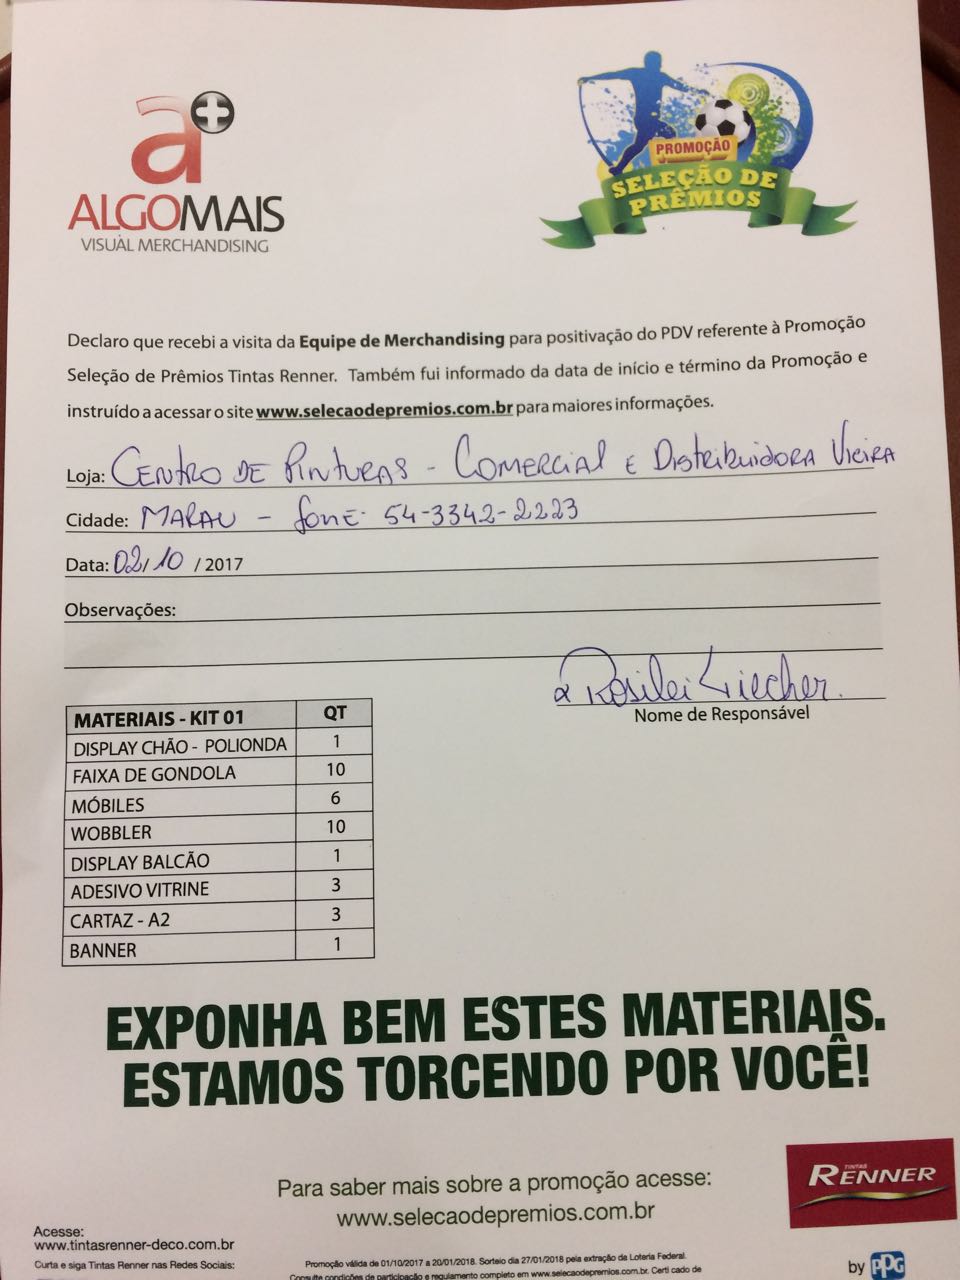 a+
ALGOMAIS
VISUAL MERCHANDISING
PROMOÇÃO
SELEÇÃO DE
PRÊMIOS
Declaro que recebi a visita da Equipe de Merchandising para positivação do PDV referente à Promoção
Seleção de Prêmios Tintas Renner. Também fui informado da data de início e término da Promoção e
instruído a acessar o site www.selecaodepremios.com.br para maiores informações.
Loja: CENTRO DE PINTURAS - COMERCIAL E DISTRIBUIDORA VIEIRA
Cidade: MARAU - fone 54-3342-2223
Data: 02/10 / 2017
Observações:
Rosilei
Nome de Responsável
MATERIAIS - KIT 01 QT
DISPLAY CHÃO - POLIONDA 1
FAIXA DE GONDOLA 10
MÓBILES 6
WOBBLER 10
DISPLAY BALCÃO 1
ADESIVO VITRINE 3
CARTAZ - A2 3
BANNER 1
EXPONHA BEM ESTES MATERIAIS.
ESTAMOS TORCENDO POR VOCÊ!
Para saber mais sobre a promoção acesse:
www.selecaodepremios.com.br
TINTAS
RENNER
Acesse:
www.tintasrenner-deco.com.br
Curta e siga Tintas Renner nas Redes Sociais:
Promoção válida de 01/10/2017 a 20/01/2018. Sorteio dia 27/01/2018 pela extração da Loteria Federal.
Consulte condições de participação e regulamento completo em www.selecaodepremios.com.br. Certi cado de
by PPG